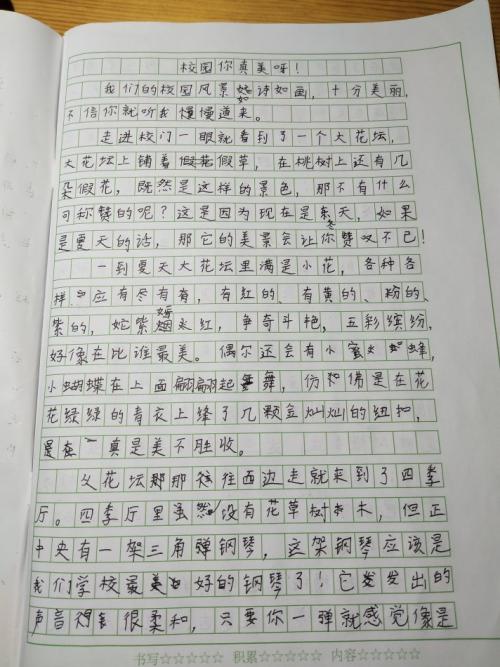 校园你真美呀！
我们的校园风景如诗如画，十分美丽，
不信你就听我慢慢道来。
走进校门一眼就看到了一个大花坛，
大花坛上铺着假花假草，在桃树上还有几
朵假花，既然是这样的景色，那不有什么
可称赞的呢？这是因为现在是冬天，如果
是夏天的话，那它的美景会让你赞叹不已！
一到夏天大花坛里满是小花，各种各
样，应有尽有，有红的、有黄的、粉的、
紫的，姹紫嫣红，争奇斗艳，五彩缤纷，
好像在比谁最美。偶尔还会有小蜜蜂，
小蝴蝶在上面翩翩起舞，仿佛是在花
花绿绿的青衣上缝了几颗金灿灿的纽扣，
真是美不胜收。
花坛那往西边走就来到了四季
厅。四季厅里虽然没有花草树木，但正
中央有一架三角钢琴，这架钢琴应该是
我们学校最好的钢琴了！它发出的
声音很柔和，只要你一弹就感觉像是
书写☆☆☆☆☆ 积累☆☆☆☆☆ 内容☆☆☆☆☆